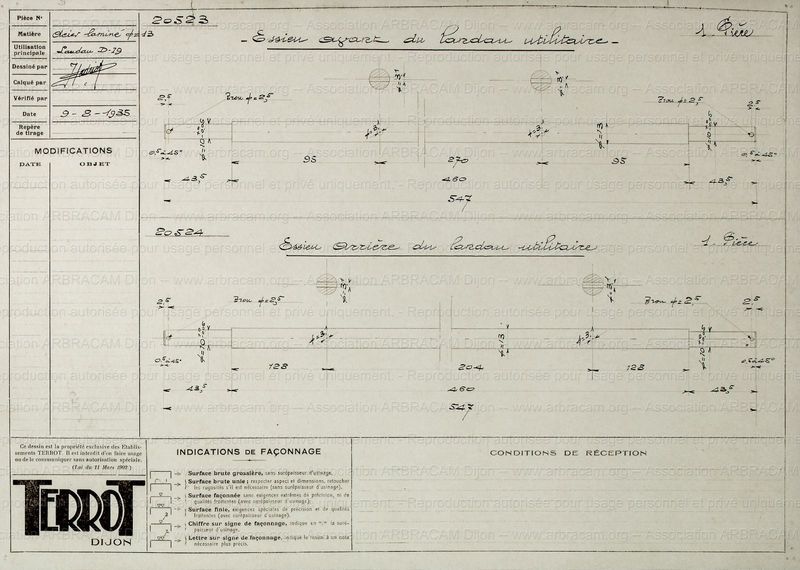 Pièce N°
Matière Acier laminé φ=13
Utilisation principale Landau D-19
Dessiné par
Calqué par
Vérifié par
Date 9-8-1935
Repère de tirage
MODIFICATIONS
DATE OBJET
20523
Essieu avant du landau utilitaire
1 Pièce
2,5 Trou φ=2,5 Trou φ=2,5 2,5
φ=13
0,5 à 45° 95 270 95 0,5 à 45°
43,5 460 43,5
547
20524
Essieu arrière du landau utilitaire
1 Pièce
2,5 Trou φ=2,5 Trou φ=2,5 2,5
φ=13
0,5 à 45° 128 204 128 0,5 à 45°
43,5 460 43,5
547
Ce dessin est la propriété exclusive des Etablis-
sements TERROT. Il est interdit d'en faire usage
ou de le communiquer sans autorisation spéciale.
(Loi du 11 Mars 1902)
TERROT
DIJON
INDICATIONS DE FAÇONNAGE
Surface brute grossière, sans surépaisseur d'usinage.
Surface brute unie ; respecter aspect et dimensions, retoucher
les rugosités s'il est nécessaire (sans surépaisseur d'usinage).
Surface façonnée sans exigences extrêmes de précision, ni de
qualités frottantes (avec surépaisseur d'usinage).
Surface finie, exigences spéciales de précision et de qualités
frottantes (avec surépaisseur d'usinage).
Chiffre sur signe de façonnage, indique en "/" la suré-
paisseur d'usinage.
Lettre sur signe de façonnage, indique le renvoi à un nota
nécessaire plus précis.
CONDITIONS DE RÉCEPTION
Reproduction autorisée pour usage personnel et privé uniquement. - Reproduction autorisée pour usage personnel et privé uniquement.
www.arbracam.org -- Association ARBRACAM Dijon -- www.arbracam.org -- Association ARBRACAM Dijon